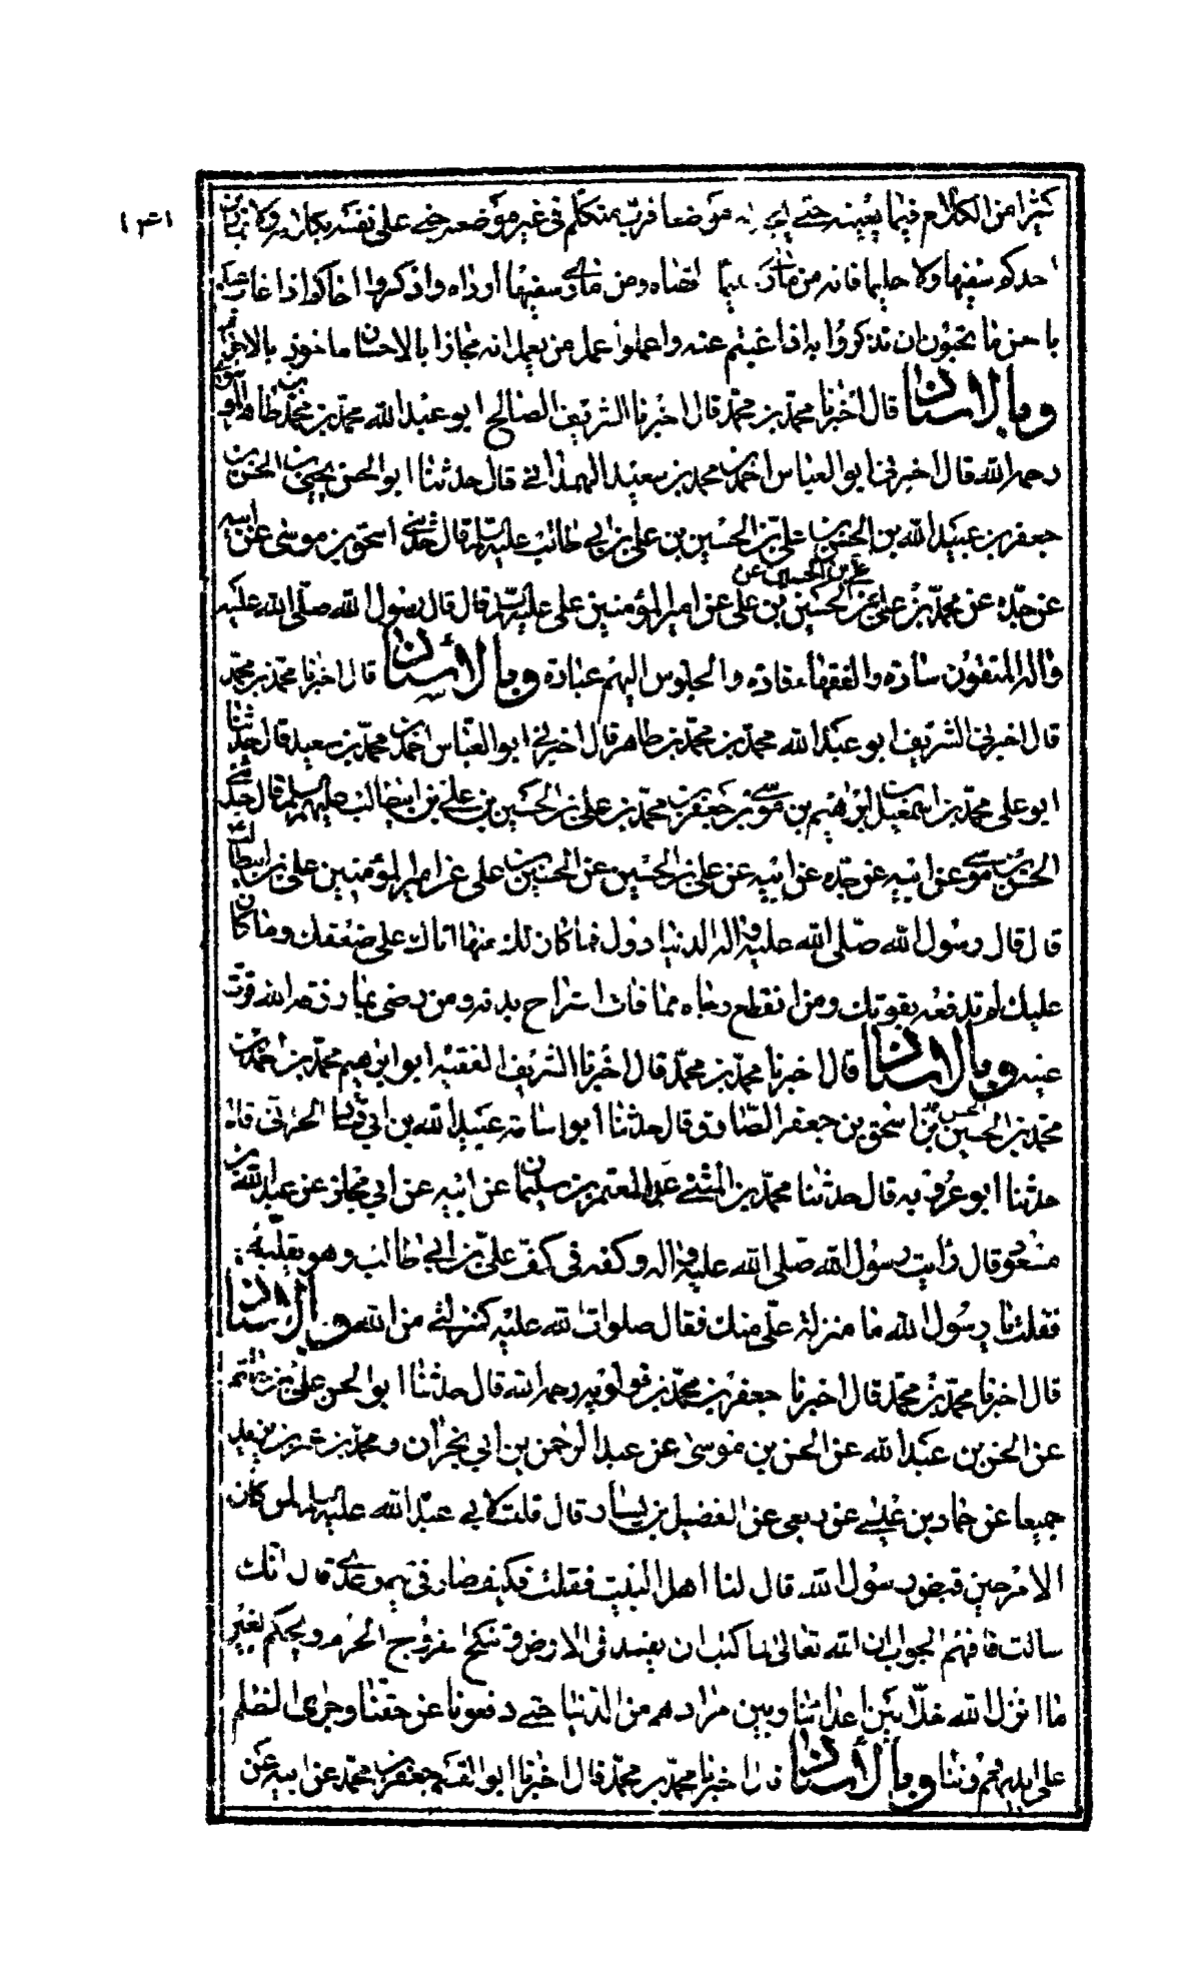 ١٣١
كثيرا من الكلام فيما يعنيه حتى يجد له موضعا فرب متكلم في غير موضعه جنى على نفسه بكلامه ولا يمارين
احدكم سفيها ولا حليما فانه من مارى حليما اقصاه ومن مارى سفيها ارداه واذكروا اخاكم اذا غاب عنكم
باحسن ما تحبون ان تذكروا به اذا غبتم عنه واعملوا عمل من يعلم انه مجازا بالاحسان ماخوذ بالاجرام
وبالاسناد قال اخبرنا محمد بن محمد قال اخبرنا الشريف الصالح ابو عبد الله محمد بن محمد بن طاهر الموسوي
رحمه الله قال اخبرني ابو العباس احمد بن محمد بن سعيد الهمداني قال حدثنا ابو الحسن يحيى بن الحسن بن
جعفر بن عبيد الله بن الحسين بن علي بن الحسين بن علي بن ابي طالب عليهم السلم قال حدثني اسحق بن موسى عن ابيه
عن جده عن محمد بن علي عن علي بن الحسين عن الحسين بن علي عن امير المؤمنين علي عليه السلم قال قال رسول الله صلى الله عليه
واله المتقون سادة والفقهاء قادة والجلوس اليهم عبادة وبالاسناد قال اخبرنا محمد بن محمد
قال اخبرني الشريف ابو عبد الله محمد بن محمد بن طاهر قال اخبرني ابو العباس احمد بن محمد بن سعيد قال حدثنا
ابو علي محمد بن اسمعيل بن ابراهيم بن موسى بن جعفر بن محمد بن علي بن الحسين بن علي بن ابيطالب عليهم السلم قال حدثني
الحسن بن موسى عن ابيه عن جده عن ابيه عن علي بن الحسين عن الحسين بن علي عن امير المؤمنين علي بن ابيطالب
قال قال رسول الله صلى الله عليه واله الدنيا دول فما كان لك منها اتاك على ضعفك وما كان
عليك لم تدفعه بقوتك ومن انقطع رجاه مما فات استراح بدنه ومن رضي بما رزقه الله قرت
عينه وبالاسناد قال اخبرنا محمد بن محمد قال اخبرنا الشريف الفقيه ابو ابرهيم محمد بن احمد بن
محمد بن الحسين بن الحسن بن اسحق بن جعفر الصادق قال حدثنا ابو اسامة عبيد الله بن ابي الحراني قال
حدثنا ابو عروبه قال حدثنا محمد بن المثنى عن المعتمر بن سليمان عن ابيه عن ابي مجلز عن عبد الله بن
مسعود قال رايت رسول الله صلى الله عليه واله وكفه في كف علي بن ابي طالب وهو يقلبه
فقلت يا رسول الله ما منزلة علي منك فقال صلوات الله عليه كمنزلتي من الله وبالاسناد
قال اخبرنا محمد بن محمد قال اخبرنا جعفر بن محمد بن قولويه رحمه الله قال حدثنا ابو الحسن علي بن حاتم
عن الحسن بن عبد الله عن الحسن بن موسى عن عبد الرحمن بن ابي نجران ومحمد بن عمر بن يزيد
جميعا عن حماد بن عيسى عن ربعي عن الفضيل بن يسار قال قلت لابي عبد الله عليه السلم لمن كان
الامر حين قبض رسول الله قال لنا اهل البيت فقلت فكيف صار في تيم وعدي قال انك
سالت فافهم الجواب ان الله تعالى لما كتب ان يفسد في الارض وتنكح الفروج الحرم ويحكم بغير
ما انزل الله خلا بين اعدائنا وبين مرادهم من الدنيا حتى دفعونا عن حقنا وجرى الظلم
على ايديهم دوننا وبالاسناد قال اخبرنا محمد بن محمد قال اخبرنا ابو القسم جعفر بن محمد عن ابيه عن